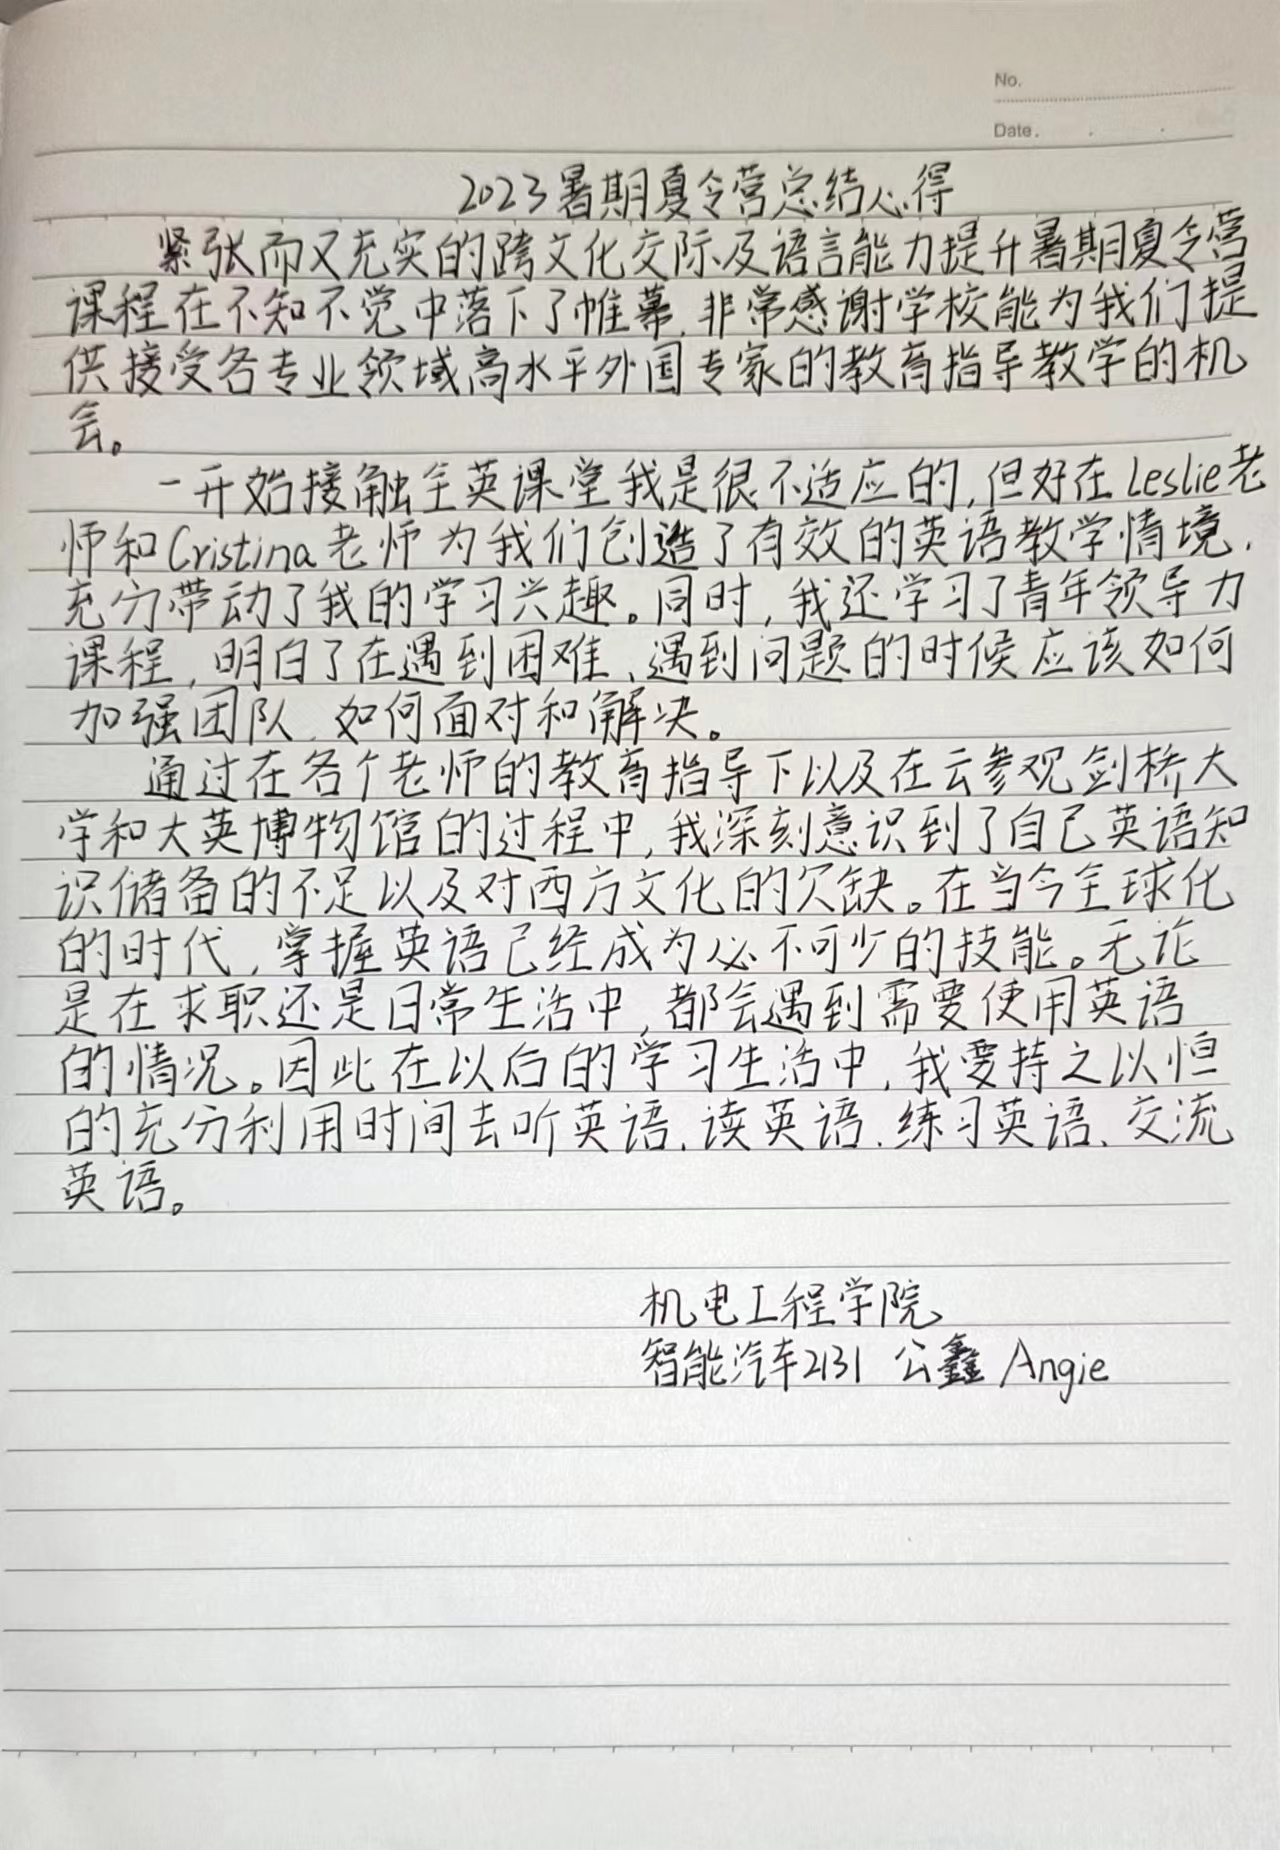 No.
Date.
2023暑期夏令营总结心得
紧张而又充实的跨文化交际及语言能力提升暑期夏令营
课程在不知不觉中落下了帷幕,非常感谢学校能为我们提
供接受各专业领域高水平外国专家的教育指导教学的机
会。
一开始接触全英课堂我是很不适应的,但好在Leslie老
师和Cristina老师为我们创造了有效的英语教学情境,
充分带动了我的学习兴趣。同时,我还学习了青年领导力
课程,明白了在遇到困难、遇到问题的时候应该如何
加强团队、如何面对和解决。
通过在各个老师的教育指导下以及在云参观剑桥大
学和大英博物馆的过程中,我深刻意识到了自己英语知
识储备的不足以及对西方文化的欠缺。在当今全球化
的时代,掌握英语已经成为必不可少的技能。无论
是在求职还是日常生活中,都会遇到需要使用英语
的情况。因此在以后的学习生活中,我要持之以恒
的充分利用时间去听英语、读英语、练习英语、交流
英语。
机电工程学院
智能汽车2131 公鑫 Angie